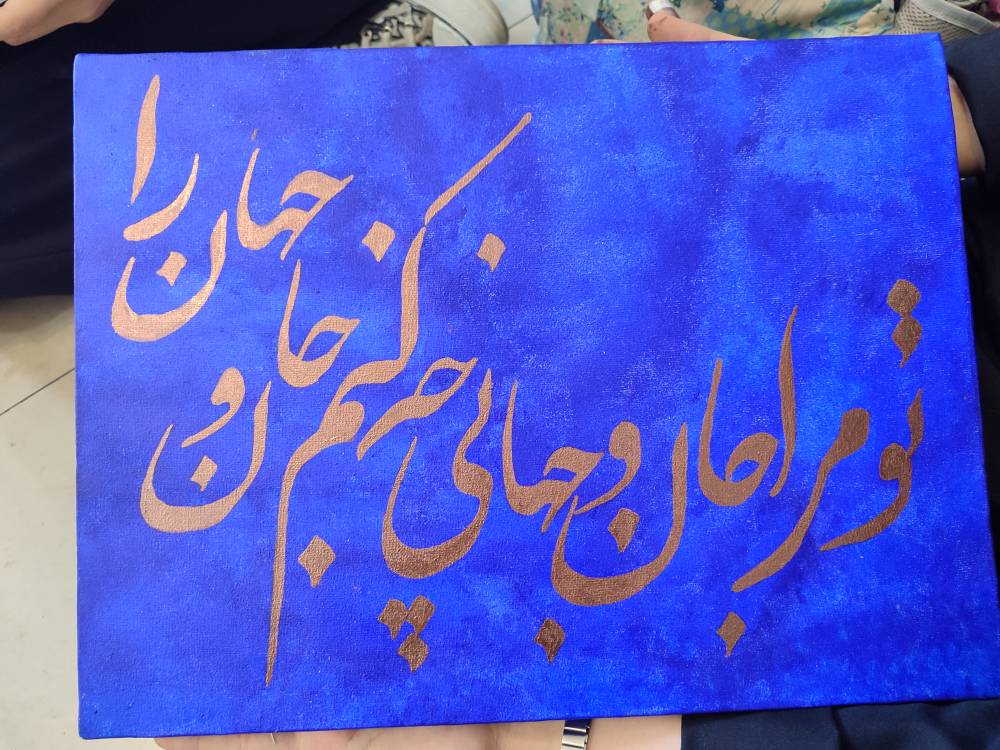 تو مرا جان و جهانی چه کنم جان و جهان را